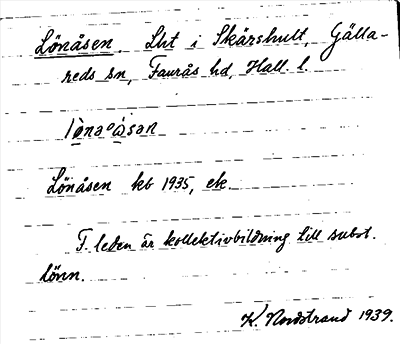 Lönåsen. Lht i Skärshult, Gälla-
reds sn, Faurås hd, Hall. l.
Lönåsen kb 1935, ek.
F. leden är kollektivbildning till subst.
lönn.
K. Nordstrand 1939.